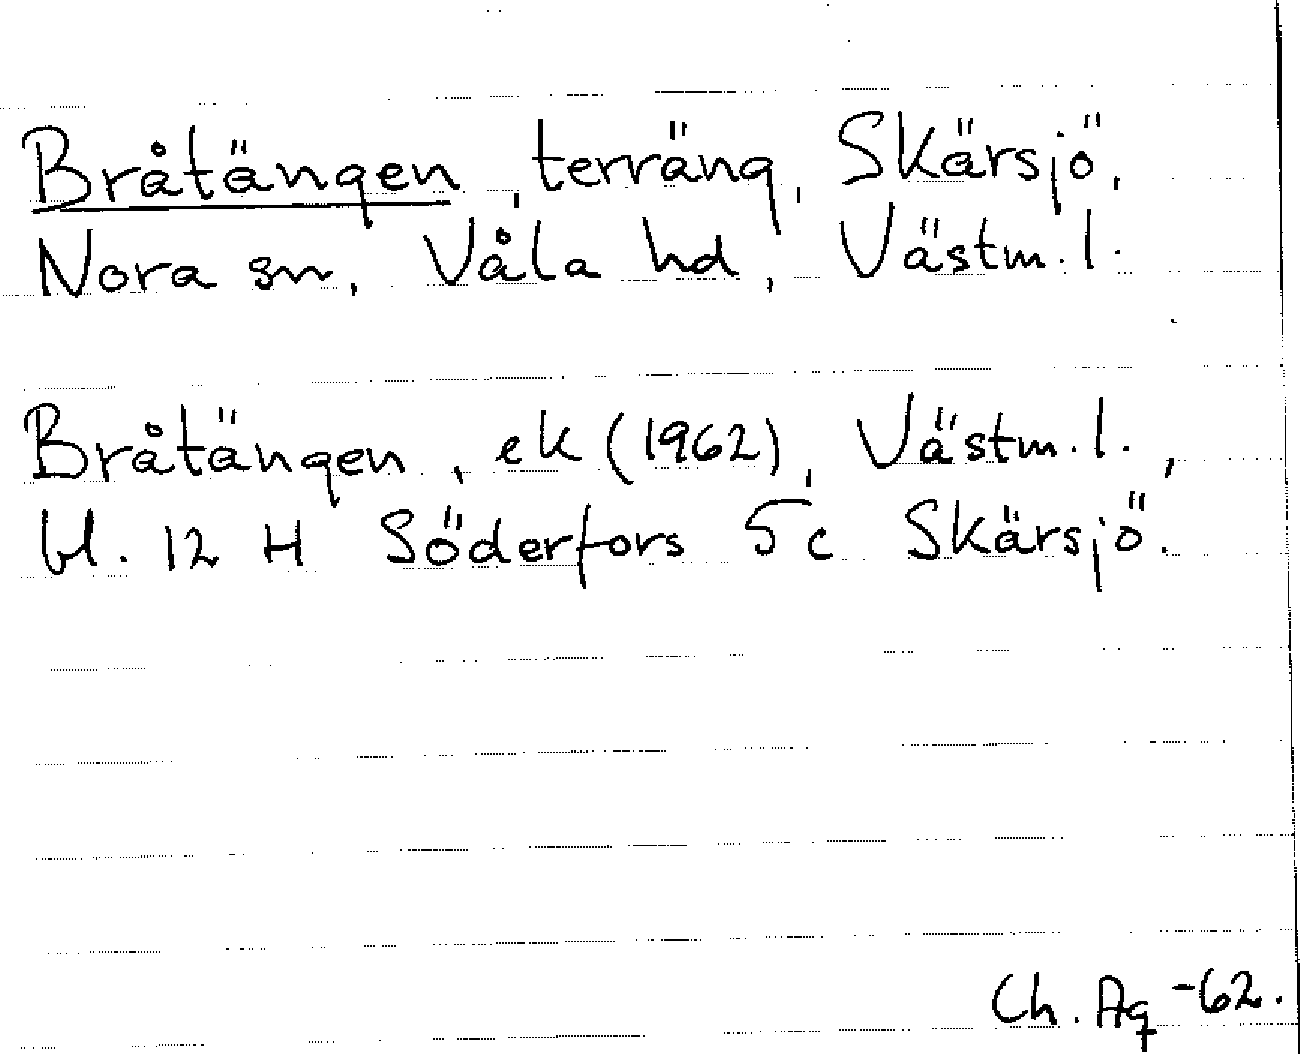 Bråtängen, terräng, Skärsjö,
Nora sn, Våla hd, Västm. l.
Bråtängen, ek (1962), Västm. l.,
bl. 12 H Söderfors 5 c Skärsjö.
Ch. Ag -62.